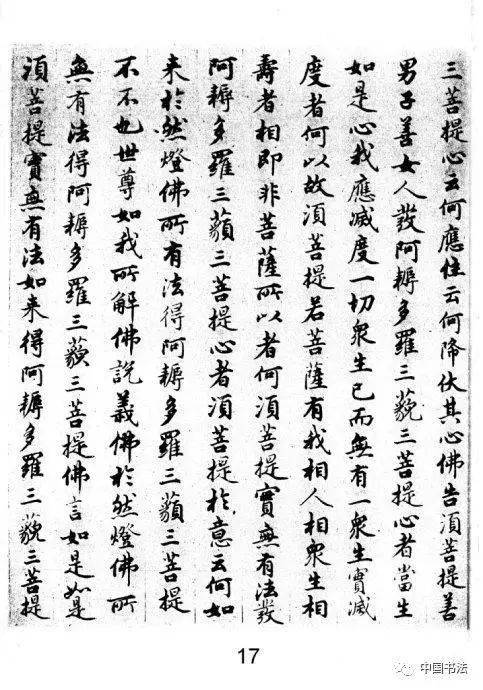 三菩提心云何應住云何降伏其心佛告湏菩提善
男子善女人發阿耨多羅三藐三菩提心者當生
如是心我應滅度一切衆生已而無有一衆生實滅
度者何以故湏菩提若菩薩有我相人相衆生相
壽者相即非菩薩所以者何湏菩提實無有法發
阿耨多羅三藐三菩提心者湏菩提於意云何如
来於然燈佛所有法得阿耨多羅三藐三菩提
不不也世尊如我所解佛說義佛於然燈佛所
無有法得阿耨多羅三藐三菩提佛言如是如是
湏菩提實無有法如来得阿耨多羅三藐三菩提
17
中国书法